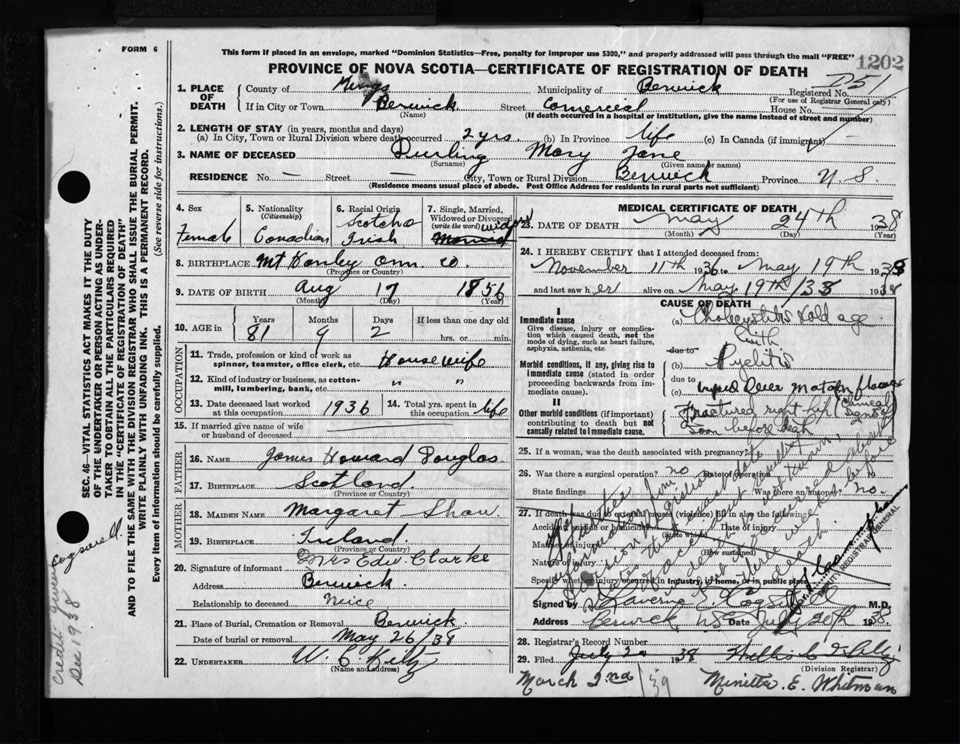 FORM 6
This form if placed in an envelope, marked "Dominion Statistics—Free, penalty for improper use $300," and properly addressed will pass through the mail "FREE"
1202
PROVINCE OF NOVA SCOTIA—CERTIFICATE OF REGISTRATION OF DEATH
1. PLACE OF DEATH
County of Kings
Municipality of Berwick
Registered No. 751
(For use of Registrar General only)
If in City or Town Berwick Street Comercial House No.
(Name) (If death occurred in a hospital or institution, give the name instead of street and number)
2. LENGTH OF STAY (in years, months and days)
(a) In City, Town or Rural Division where death occurred 2 yrs. (b) In Province life (c) In Canada (if immigrant) —
3. NAME OF DECEASED Durling Mary Jane
(Surname) (Given name or names)
RESIDENCE No. — Street — City, Town or Rural Division Berwick Province N. S.
(Residence means usual place of abode. Post Office Address for residents in rural parts not sufficient)
4. Sex
Female
5. Nationality (Citizenship)
Canadian
6. Racial Origin
Scotch
Irish
7. Single, Married, Widowed or Divorced (write the word)
widow
Married
8. BIRTHPLACE Mt Hanley Ann. Co.
(Province or Country)
9. DATE OF BIRTH Aug 17 1856
(Month) (Day) (Year)
10. AGE in
Years Months Days If less than one day old
81 9 2 hrs. or min.
OCCUPATION
11. Trade, profession or kind of work as spinner, teamster, office clerk, etc. Housewife
12. Kind of industry or business, as cotton-mill, lumbering, bank, etc. " "
13. Date deceased last worked at this occupation 1936
14. Total yrs. spent in this occupation life
15. If married give name of wife or husband of deceased
FATHER
16. NAME James Howard Douglas
17. BIRTHPLACE Scotland
(Province or Country)
MOTHER
18. MAIDEN NAME Margaret Shaw
19. BIRTHPLACE Ireland
(Province or Country)
20. Signature of informant Mrs Edw. Clarke
Address Berwick.
Relationship to deceased neice
21. Place of Burial, Cremation or Removal Berwick.
Date of burial or removal May 26/38
22. UNDERTAKER
(Name and address)
MEDICAL CERTIFICATE OF DEATH
23. DATE OF DEATH May 24th 1938
(Month) (Day) (Year)
24. I HEREBY CERTIFY that I attended deceased from:
November 11th 1936 to May 19th 1938
and last saw her alive on May 19th/38 1938
CAUSE OF DEATH
I
Immediate cause
Give disease, injury or complication which caused death, not the mode of dying, such as heart failure, asphyxia, asthenia, etc.
(a) Cholecystitis & old age
with
due to
Morbid conditions, if any, giving rise to immediate cause (stated in order proceeding backwards from immediate cause).
(b) Pyelitis
due to
(c)
II
Other morbid conditions (if important) contributing to death but not causally related to immediate cause.
Fractured right hip
soon before death
25. If a woman, was the death associated with pregnancy?
26. Was there a surgical operation? no Date of operation
State findings Was there an autopsy? No.
27. If death was due to external causes (violence) fill in also the following:
Accident, suicide or homicide? Date of injury
(State which)
Manner of injury
(How sustained)
Nature of injury
Specify whether injury occurred in industry, in home, or in public place
DEPUTY REGISTRAR GENERAL
Signed by M.D.
Address Berwick NS Date July 20th 1938.
28. Registrar's Record Number
29. Filed July 20 1938
(Division Registrar)
March 2nd/39 Minetta E. Whitman
SEC. 46—VITAL STATISTICS ACT MAKES IT THE DUTY OF THE UNDERTAKER OR PERSON ACTING AS UNDERTAKER TO OBTAIN ALL THE PARTICULARS REQUIRED IN THE "CERTIFICATE OF REGISTRATION OF DEATH" AND TO FILE THE SAME WITH THE DIVISION REGISTRAR WHO SHALL ISSUE THE BURIAL PERMIT.
WRITE PLAINLY WITH UNFADING INK. THIS IS A PERMANENT RECORD.
Every item of information should be carefully supplied. (See reverse side for instructions.)
Credit given Cogswell.
Dec 1938